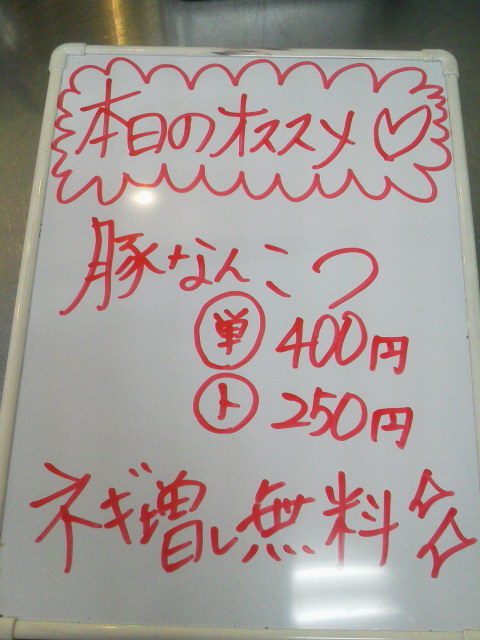 本日のオススメ♡
豚なんこつ
単 400円
ト 250円
ネギ増し無料